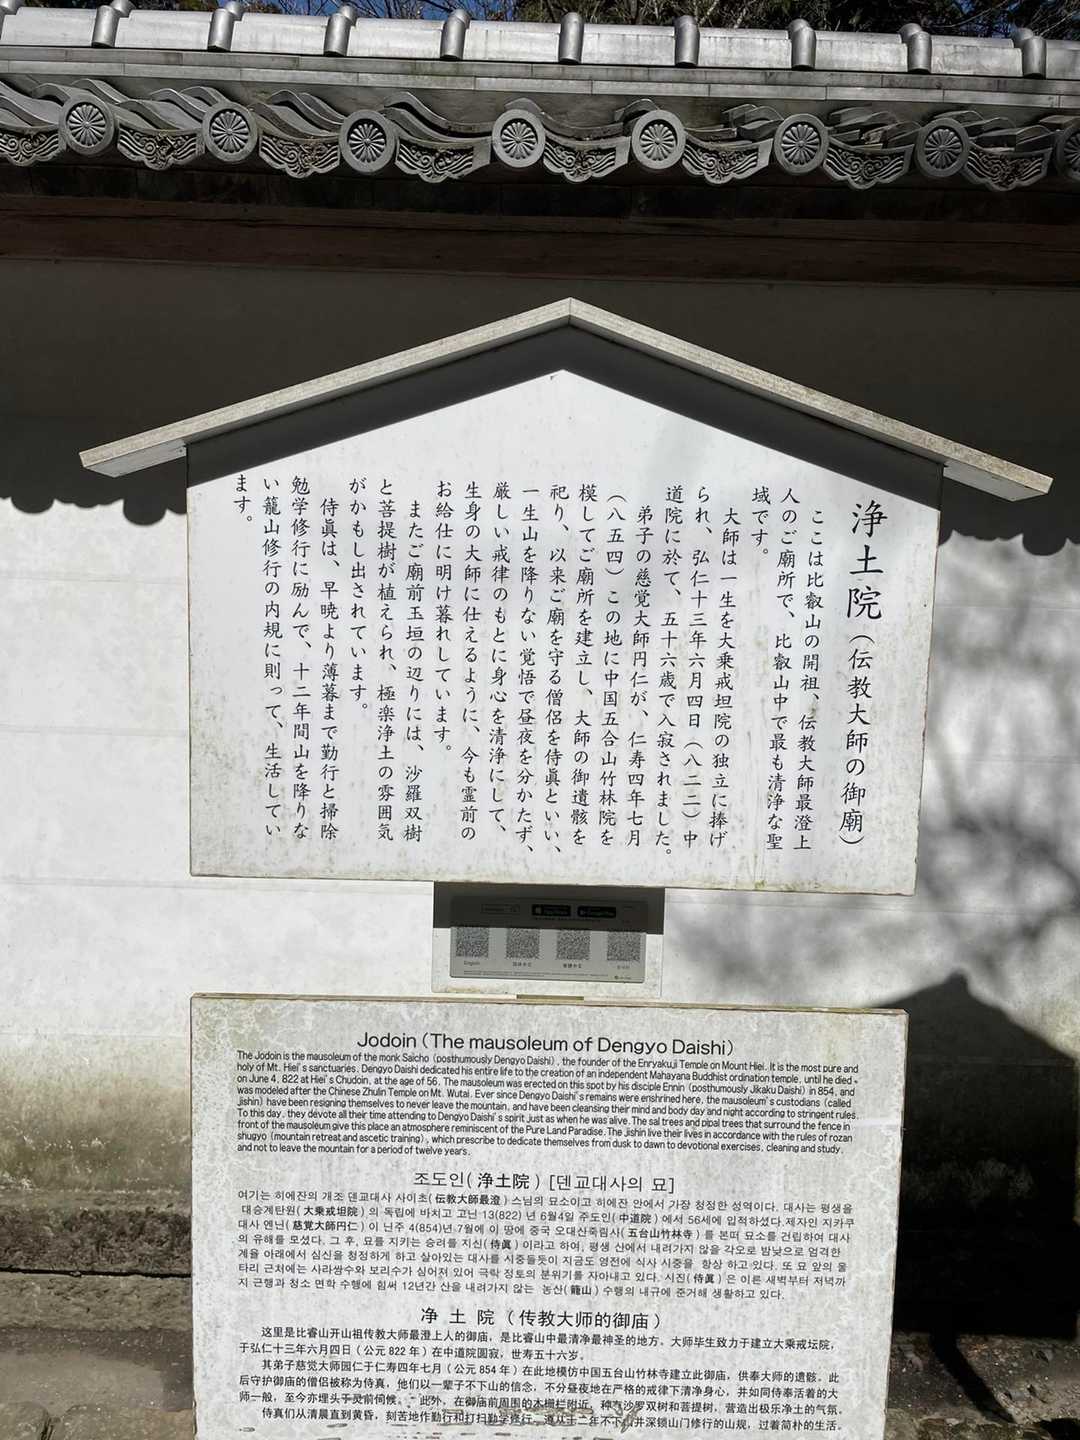 浄土院（伝教大師の御廟）
ここは比叡山の開祖、伝教大師最澄上
人のご廟所で、比叡山中で最も清浄な聖
域です。
大師は一生を大乗戒坦院の独立に捧げ
られ、弘仁十三年六月四日（八二二）中
道院に於て、五十六歳で入寂されました。
弟子の慈覚大師円仁が、仁寿四年七月
（八五四）この地に中国五合山竹林院を
模してご廟所を建立し、大師の御遺骸を
祀り、以来ご廟を守る僧侶を侍眞といい、
一生山を降りない覚悟で昼夜を分かたず、
厳しい戒律のもとに身心を清浄にして、
生身の大師に仕えるように、今も霊前の
お給仕に明け暮れしています。
またご廟前玉垣の辺りには、沙羅双樹
と菩提樹が植えられ、極楽浄土の雰囲気
がかもし出されています。
侍眞は、早暁より薄暮まで勤行と掃除
勉学修行に励んで、十二年間山を降りな
い籠山修行の内規に則って、生活してい
ます。
English
Jodoin (The mausoleum of Dengyo Daishi)
The Jodoin is the mausoleum of the monk Saicho (posthumously Dengyo Daishi), the founder of the Enryakuji Temple on Mount Hiei. It is the most pure and
holy of Mt. Hiei's sanctuaries. Dengyo Daishi dedicated his entire life to the creation of an independent Mahayana Buddhist ordination temple, until he died
on June 4, 822 at Hiei's Chudoin, at the age of 56. The mausoleum was erected on this spot by his disciple Ennin (posthumously Jikaku Daishi) in 854, and
was modeled after the Chinese Zhulin Temple on Mt. Wutai. Ever since Dengyo Daishi's remains were enshrined here, the mausoleum's custodians (called
jishin) have been resigning themselves to never leave the mountain, and have been cleansing their mind and body day and night according to stringent rules.
To this day, they devote all their time attending to Dengyo Daishi's spirit just as when he was alive. The sal trees and pipal trees that surround the fence in
front of the mausoleum give this place an atmosphere reminiscent of the Pure Land Paradise. The jishin live their lives in accordance with the rules of rozan
shugyo (mountain retreat and ascetic training), which prescribe to dedicate themselves from dusk to dawn to devotional exercises, cleaning and study,
and not to leave the mountain for a period of twelve years.
조도인(浄土院) [덴교대사의 묘]
여기는 히에잔의 개조 덴교대사 사이초(伝教大師最澄) 스님의 묘소이고 히에잔 안에서 가장 청정한 성역이다. 대사는 평생을
대승계탄원(大乗戒坦院) 의 독립에 바치고 고닌 13(822) 년 6월4일 주도인(中道院) 에서 56세에 입적하셨다.제자인 지카쿠
대사 엔닌(慈覚大師円仁) 이 닌주 4(854)년 7월에 이 땅에 중국 오대산죽림사(五台山竹林寺) 를 본떠 묘소를 건립하여 대사
의 유해를 모셨다. 그 후, 묘를 지키는 승려를 지신(侍眞) 이라고 하여, 평생 산에서 내려가지 않을 각오로 밤낮으로 엄격한
계율 아래에서 심신을 청정하게 하고 살아있는 대사를 시중들듯이 지금도 영전에 식사 시중을 항상 하고 있다. 또 묘 앞의 울
타리 근처에는 사라쌍수와 보리수가 심어져 있어 극락 정토의 분위기를 자아내고 있다. 시진(侍眞) 은 이른 새벽부터 저녁까
지 근행과 청소 면학 수행에 힘써 12년간 산을 내려가지 않는 농산(籠山) 수행의 내규에 준거해 생활하고 있다.
净土院（传教大师的御庙）
这里是比睿山开山祖传教大师最澄上人的御庙，是比睿山中最清净最神圣的地方。大师毕生致力于建立大乘戒坛院，
于弘仁十三年六月四日（公元 822 年）在中道院圆寂，世寿五十六岁。
其弟子慈觉大师园仁于仁寿四年七月（公元 854 年）在此地模仿中国五台山竹林寺建立此御庙，供奉大师的遗骸。此
后守护御庙的僧侣被称为侍真，他们以一辈子不下山的信念，不分昼夜地在严格的戒律下清净身心，并如同侍奉活着的大
师一般，至今亦埋头于灵前伺候。此外，在御庙前周围的木栅栏附近，种有沙罗双树和菩提树，营造出极乐净土的气氛。
侍真们从清晨直到黄昏，刻苦地作勤行和打扫勤学修行，遵从十二年不下山并深锁山门修行的山规，过着简朴的生活。